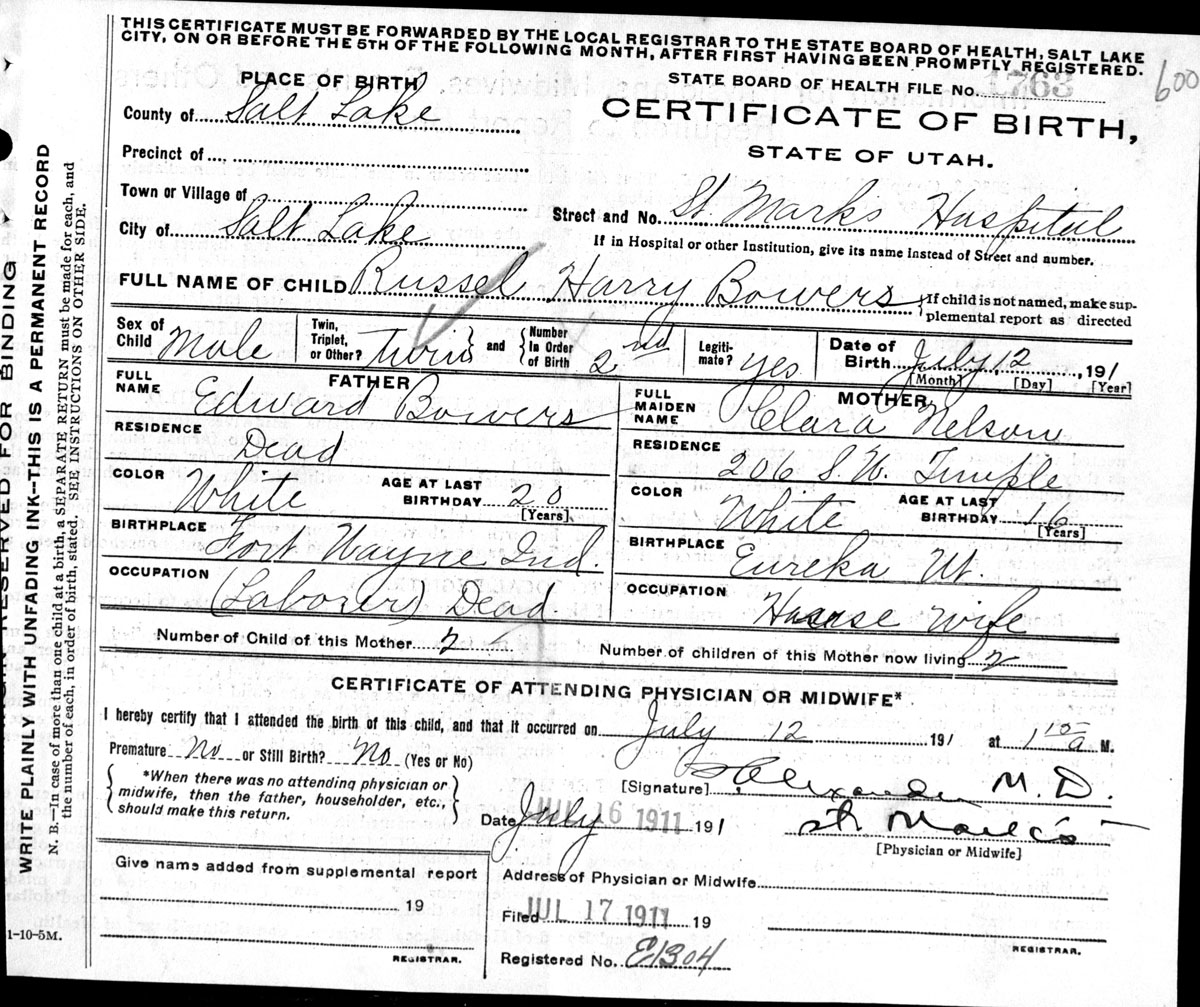 THIS CERTIFICATE MUST BE FORWARDED BY THE LOCAL REGISTRAR TO THE STATE BOARD OF HEALTH, SALT LAKE
CITY, ON OR BEFORE THE 5TH OF THE FOLLOWING MONTH, AFTER FIRST HAVING BEEN PROMPTLY REGISTERED.
600
PLACE OF BIRTH
STATE BOARD OF HEALTH FILE No. 1763
County of Salt Lake
CERTIFICATE OF BIRTH,
STATE OF UTAH.
Precinct of
Town or Village of
City of Salt Lake
Street and No. St. Marks Hospital
If in Hospital or other Institution, give its name instead of Street and number.
FULL NAME OF CHILD Russel Harry Bowers {If child is not named, make sup-
plemental report as directed
Sex of Child Male Twin, Triplet, or Other? twin } and { Number In Order of Birth 2nd Legiti-mate? yes Date of Birth July 12 191 1
[Month] [Day] [Year]
FATHER
FULL NAME Edward Bowers
RESIDENCE Dead
COLOR White AGE AT LAST BIRTHDAY 20
[Years]
BIRTHPLACE Fort Wayne Ind.
OCCUPATION (Laborer) Dead
MOTHER
FULL MAIDEN NAME Clara Nelson
RESIDENCE 206 S. W. Temple
COLOR White AGE AT LAST BIRTHDAY 16
[Years]
BIRTHPLACE Eureka Ut.
OCCUPATION House wife
Number of Child of this Mother 2 Number of children of this Mother now living 2
CERTIFICATE OF ATTENDING PHYSICIAN OR MIDWIFE*
I hereby certify that I attended the birth of this child, and that it occurred on July 12 191 at 1 10 a M.
Premature No or Still Birth? No (Yes or No)
{ *When there was no attending physician or
midwife, then the father, householder, etc.,
should make this return. }
[Signature] Alexander M. D.
Date July JUL 16 1911 191 1 St. Mark's
[Physician or Midwife]
Give name added from supplemental report
19
REGISTRAR.
Address of Physician or Midwife
Filed JUL 17 1911 19
Registered No. E1304
REGISTRAR.
1-10-5M.
RESERVED FOR BINDING
WRITE PLAINLY WITH UNFADING INK—THIS IS A PERMANENT RECORD
N. B.—In case of more than one child at a birth, a SEPARATE RETURN must be made for each, and
the number of each, in order of birth, stated. SEE INSTRUCTIONS ON OTHER SIDE.